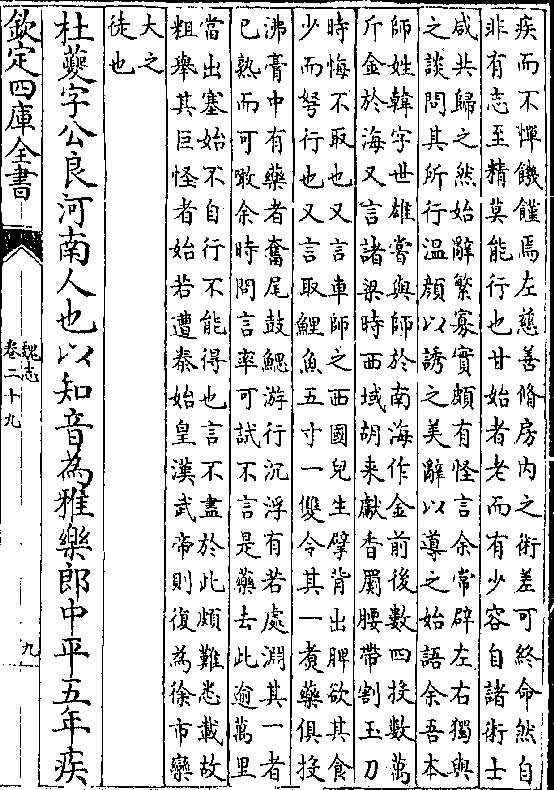 疾而不憚饑饉焉左慈善脩房内之術差可終命然自
非有志至精莫能行也甘始者老而有少容自諸術士
咸共歸之然始辭繁寡實頗有怪言余常辟左右獨與
之談問其所行温顔以誘之美辭以導之始語余吾本
師姓韓字世雄嘗與師於南海作金前後數四投數萬
斤金於海又言諸梁時西域胡来獻香罽腰帶割玉刀
時悔不取也又言車師之西國兒生擘背出脾欲其食
少而弩行也又言取鯉魚五寸一雙令其一煑藥俱投
沸膏中有藥者奮尾鼓鰓游行沉浮有若處淵其一者
已熟而可噉余時問言率可試不言是藥去此逾萬里
當出塞始不自行不能得也言不盡於此頗難悉載故
粗舉其巨怪者始若遭秦始皇漢武帝則復為徐市欒
大之
徒也
杜夔字公良河南人也以知音為雅樂郎中平五年疾
欽定四庫全書
魏志
卷二十九
九